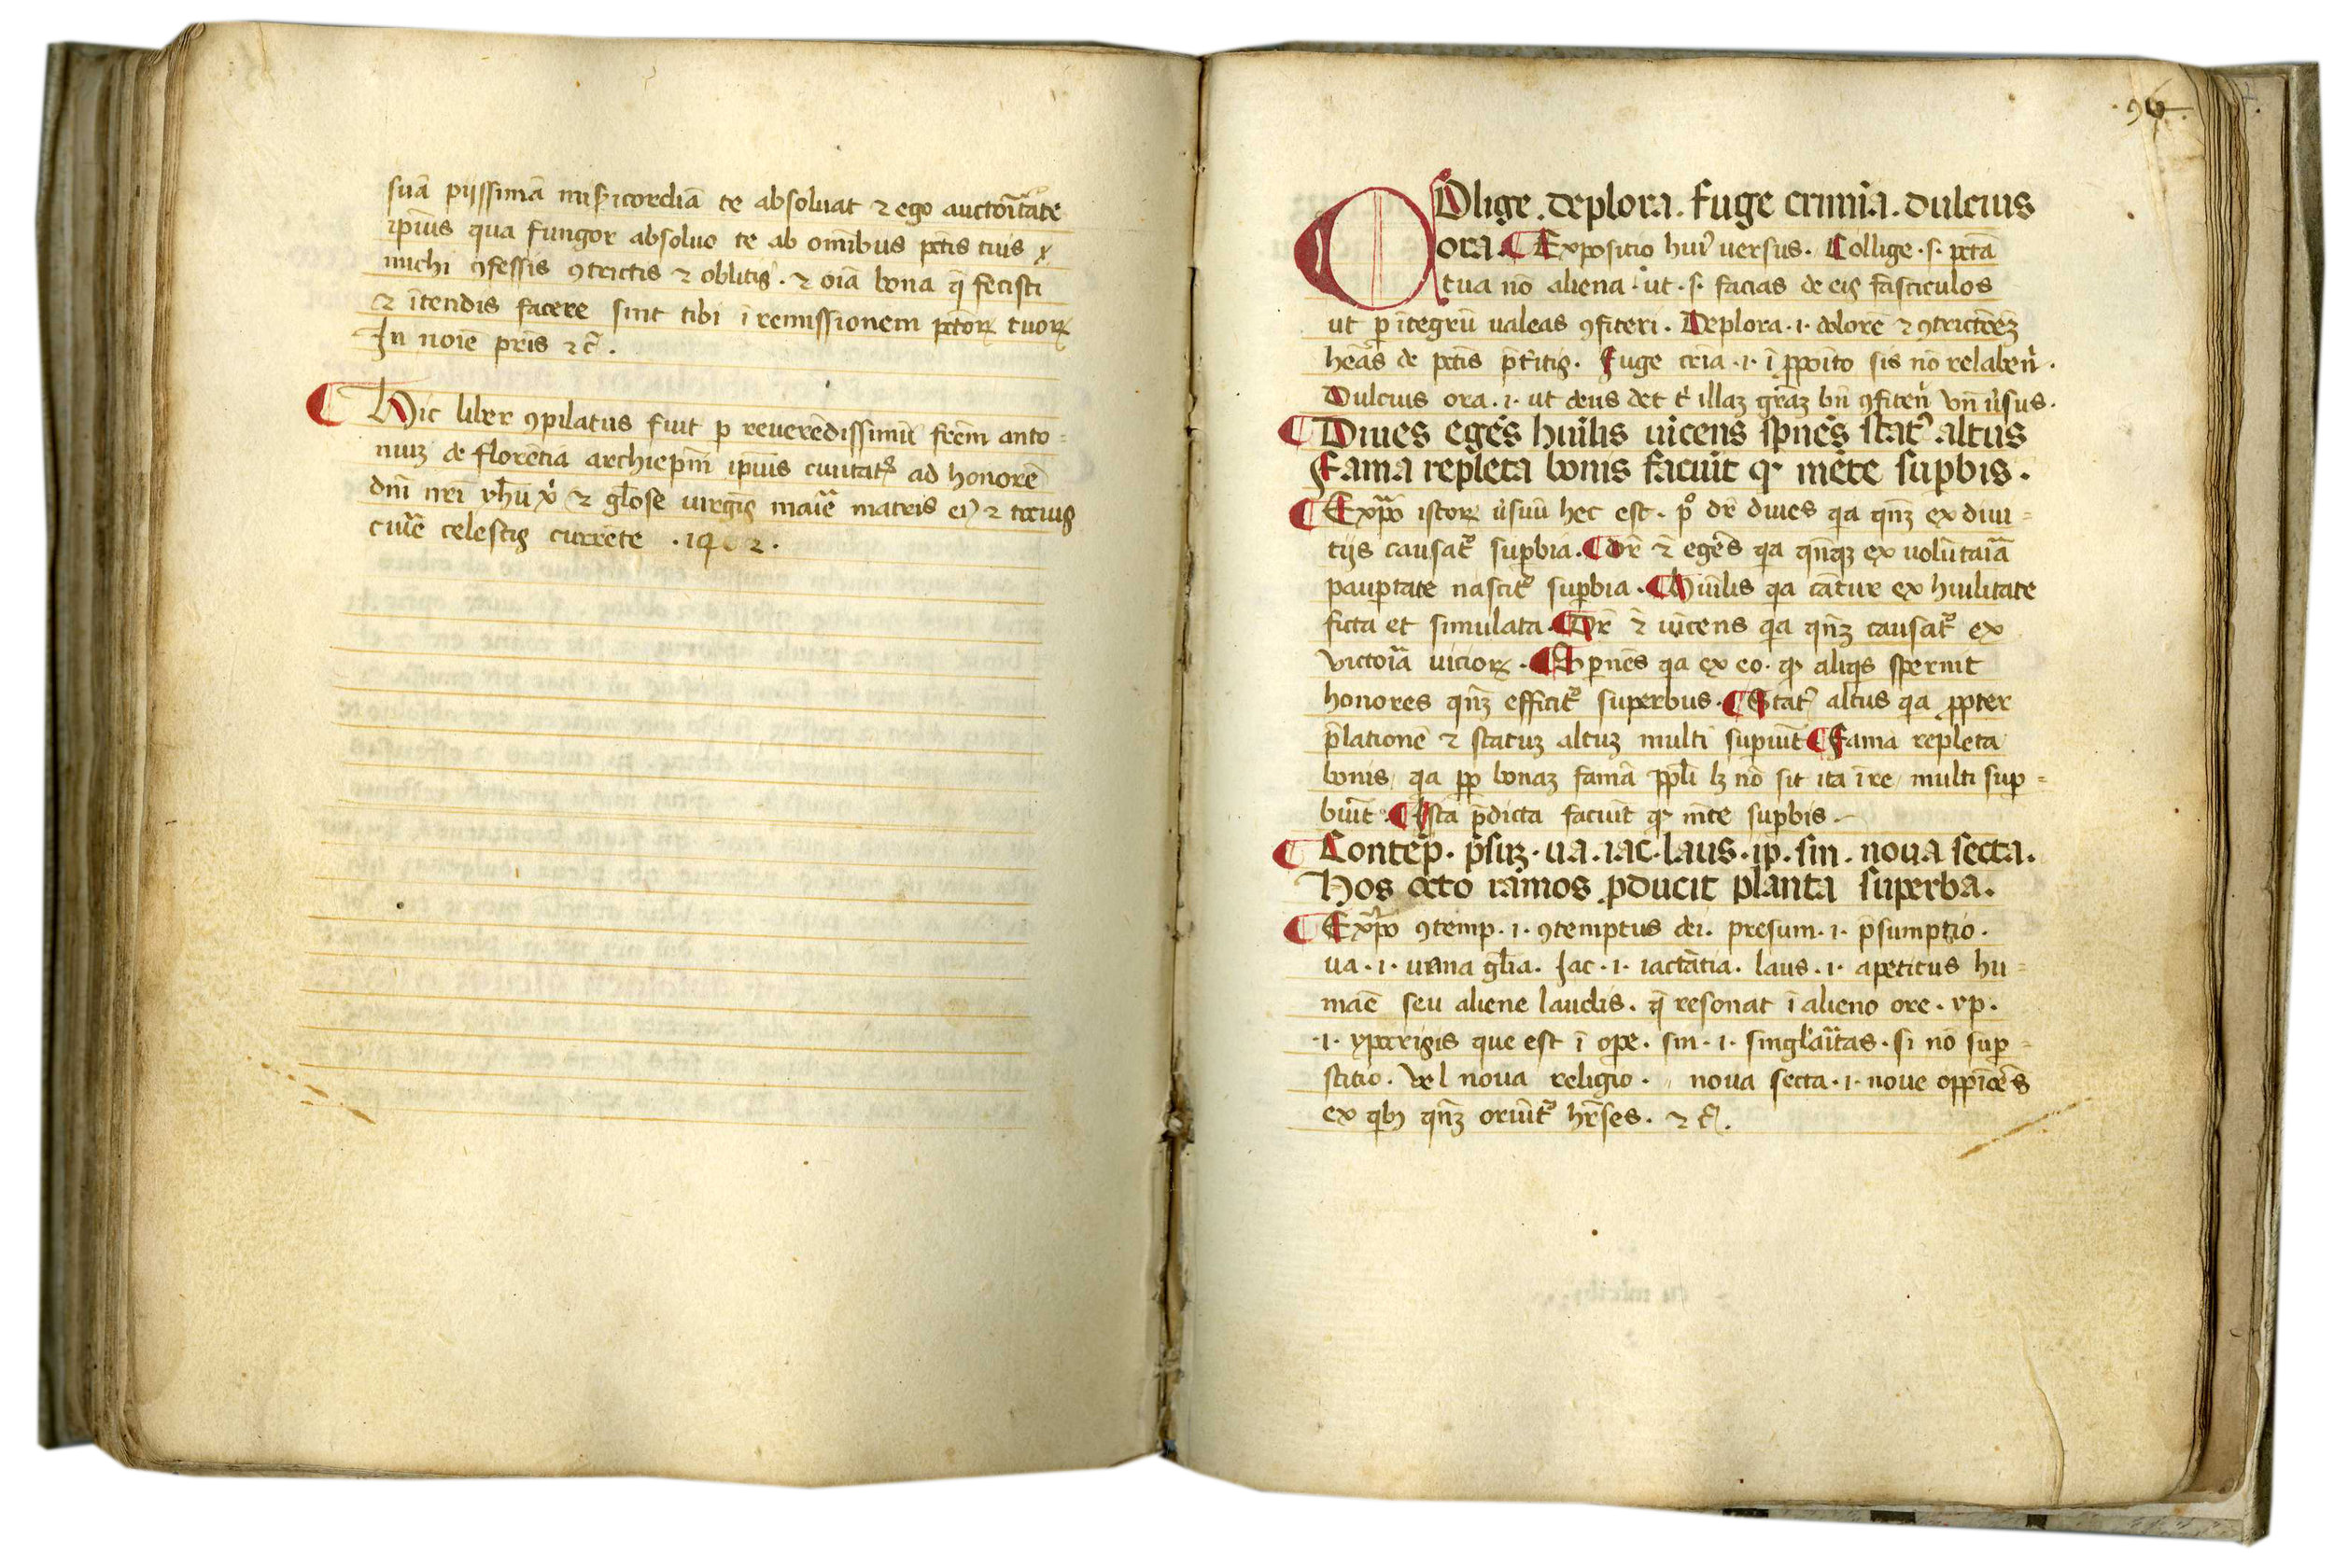 suā pijssimā misicordiā te absoluat ⁊ ego auctoritate
ipius qua fungor absoluo te ab omnibus pctis tuis
michi ꝯfessis ꝯtrictis ⁊ oblitis · ⁊ oīa bona q̄ fecisti
⁊ ītendis facere sint tibi ī remissionem pctorꝝ tuorꝝ
In noīe pris ⁊c̄ .
¶ Hic liber ꝯpilatus fuit p reuerēdissimū frēm anto=
niuꝫ de florētia archiepm̄ ipius ciuitatꝭ ad honorē
dnī nrī yhū xi ⁊ glōse uirgīs maīe matris eiꝰ ⁊ totius
curīe celestis currēte .
·96·
COllige . deplora . fuge crimīa . dulcius
ora . ¶ Expositio huiꝰ uersus . Collige · s · pctā
tua nō aliena · ut · s · facias de eis fasciculos
ut p ītegrū ualeas ꝯfiteri . Deplora · i · dolorē ⁊ ꝯtrictōeꝫ
heās de pctis p̄titis . Fuge crīa · i · ī pposito sis nō relaben .
Dulcius ora · i · ut deus det t illaꝫ grāꝫ bn̄ ꝯfiten vn̄ ūsus .
¶ Diues egēs hūilis uīcens spnēs statꝰ altus
Fama repleta bonis faciūt ꝙ mēte supbis .
¶ Expō istorꝫ ūsuū hec est . pº dr̄ diues qa qn̄ꝫ ex diui=
tijs causatꝰ supbia . ¶ Dr̄ ⁊ egēs qa qn̄qꝫ ex uolūtaīa
pauptate nascitꝰ supbia . ¶ Hūilis qa cātur ex hūilitate
ficta et simulata . ¶ Dr̄ ⁊ uīcens qa qn̄ꝫ causatꝰ ex
victoīa uiciorꝫ . ¶ Spnēs qa ex eo · ꝙ aliqs spernit
honores qn̄ꝫ efficitꝰ superbus . ¶ Statꝰ altus qa ppter
p̄lationē ⁊ statuꝫ altuꝫ multi supiūt ¶ Fama repleta
bonis qa pp bonaꝫ famā ppli lꝫ nō sit ita ī re multi sup=
biūt . ¶ Ista p̄dicta faciūt ꝙ mēte supbis .
¶ Contēp · p̄sūꝫ · ua · iac · laus · ip · sin · noua secta .
Hos octo ramos pducit planta superba .
¶ Expō ꝯtemp · i · ꝯtemptus dei . presum · i · p̄sumptio .
ua · i · uana glīa . Iac · i · iactātia . laus · i · apetitus hu=
māe seu aliene laudis . q̄ resonat ī alieno ore . yp .
· i · ypocrisis que est ī ope . sin · i · singlaītas · si nō sup=
stitio . vel noua religio . noua secta · i · noue oppīōes
ex qbꝫ qn̄ꝫ oriūtꝰ hr̄ses . ⁊ c̄ .